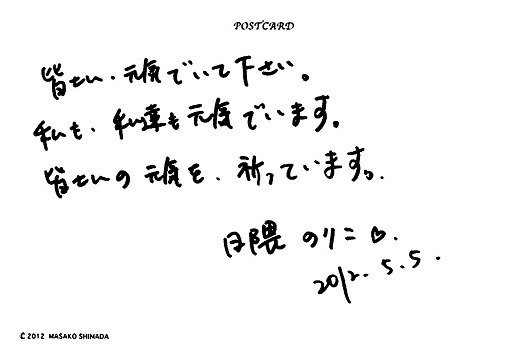 POSTCARD
皆さん、元気でいて下さい。
私も、私達も元気でいます。
皆さんの元気を、祈っています。
日隈 のりこ ♡.
2012. 5. 5.
© 2012 MASAKO SHIMADA